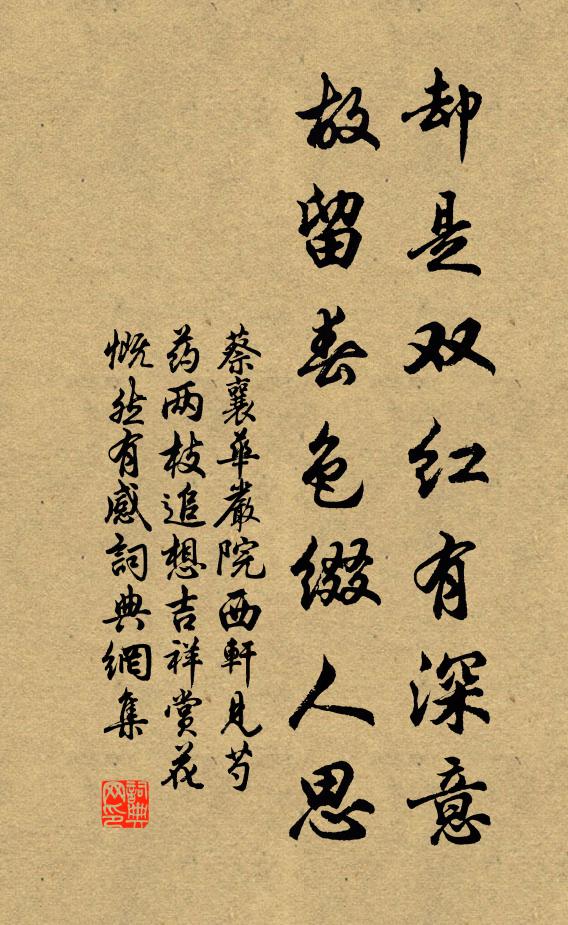 却是双红有深意
故留春色缀人思
蔡襄華嚴院西軒見芍
药两枝追想吉祥赏花
慨然有感詞典網集
詞典
网印